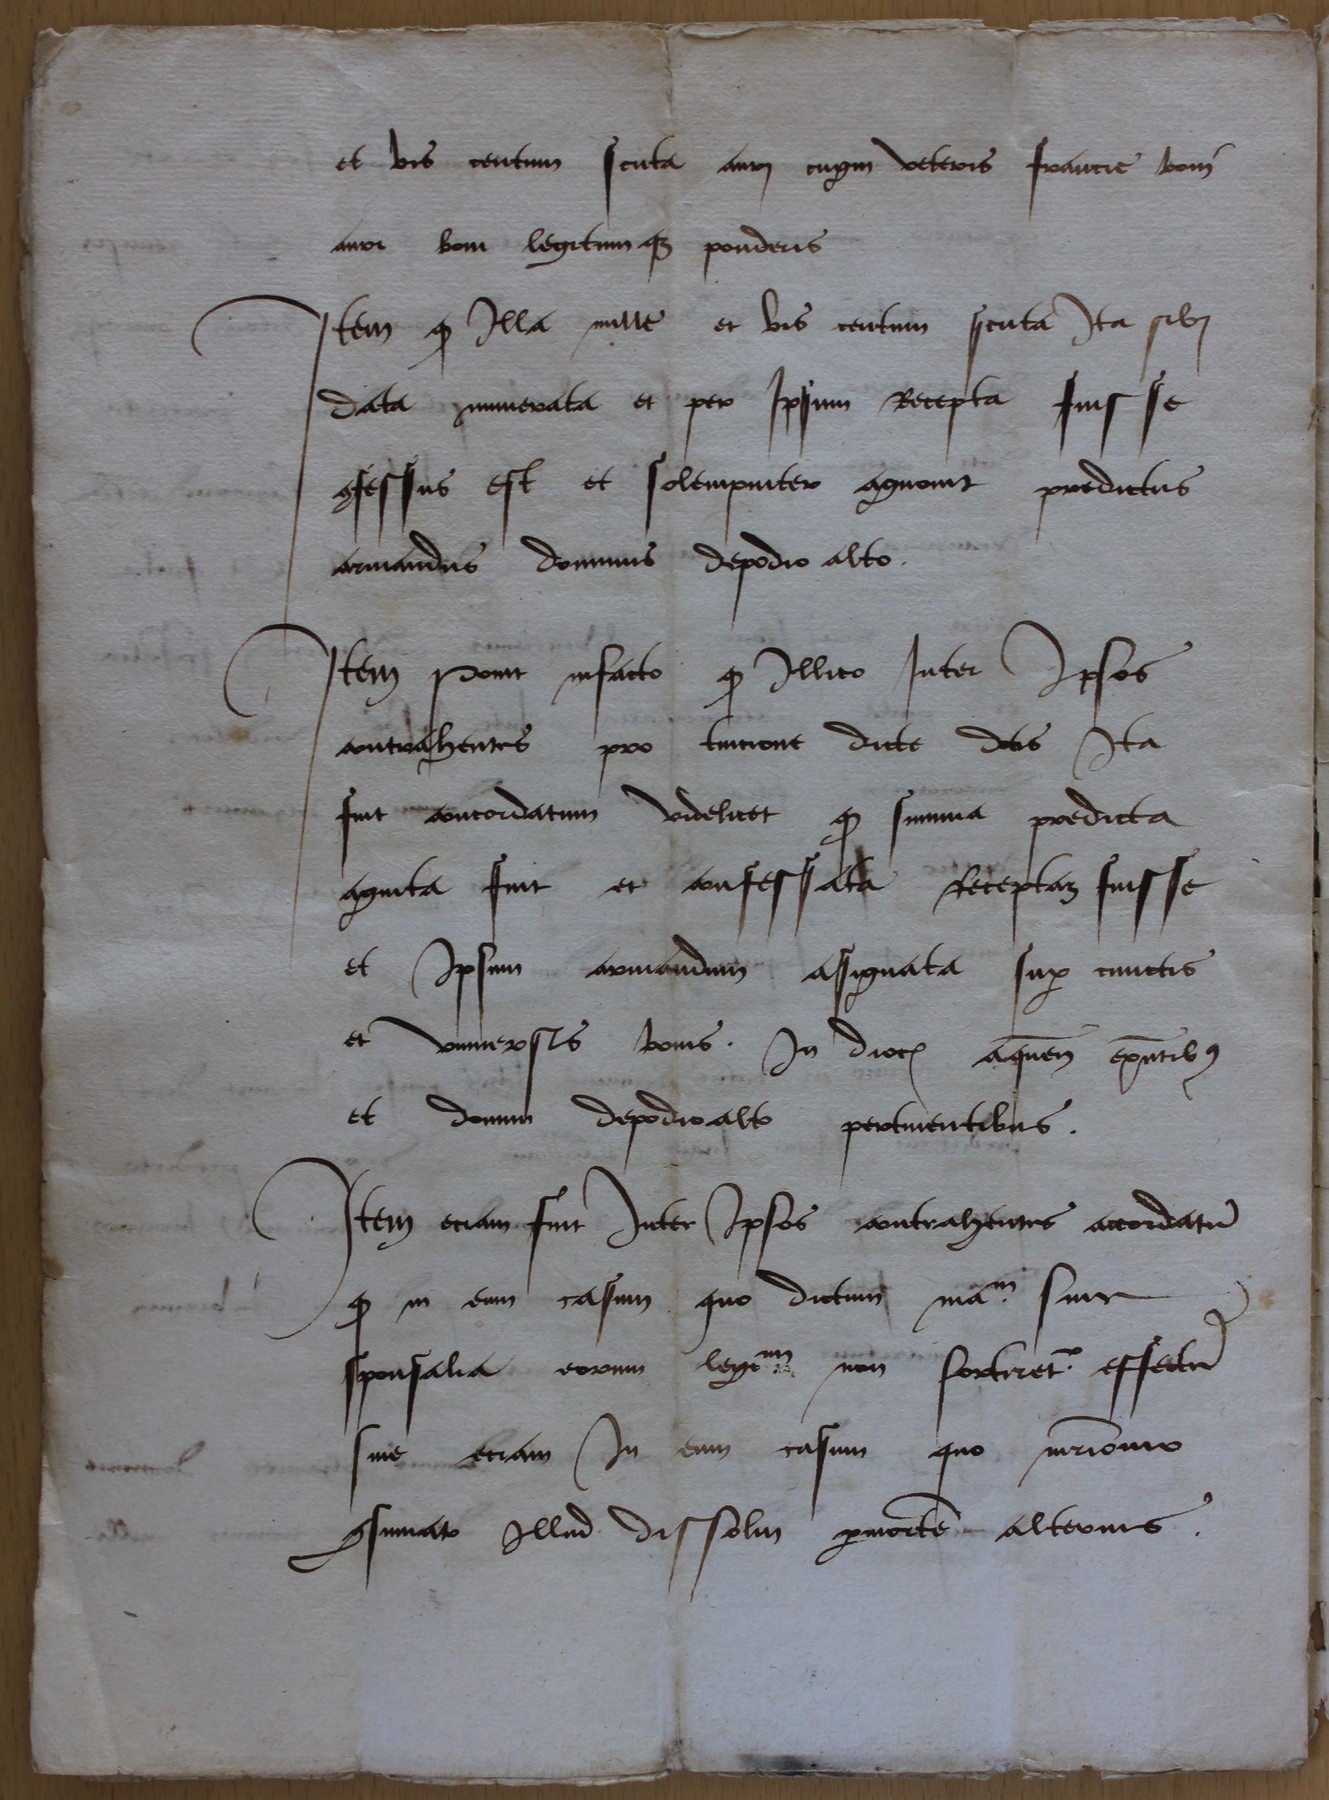 et bis centum scuta auri cugni veteris francie boni
auri boni legitimiqꝫ ponderis
Item ꝙ Illa mille et bis centum scuta Ita sibi
data numerata et per Ipsum Recepta fuisse
ꝯfessus est et solempniter agnouit predictus
armandus dominus depodio alto.
Item ponit infacto ꝙ Illico Inter Ipsos
contrahentes pro tuicione dicte dotis Ita
fuit concordatum videlicet ꝙ summa predicta
agnita fuit et confessata Receptaꝫ fuisse
et Ipsum armandum assignata suꝑ cunctis
et vniuersis bonis. In dioc̄ aquen̄ exn̄tibꝯ
et domini depodioalto pertinentibus.
Item eciam fuit Inter Ipsos contrahentes accordatū
ꝙ in eum casum quo dictum mãᵐ siue
sponsalia eorum legiᵐᵘᵐ non sortiret᷑ effectū
siue eciam In eum casum quo mr̄ionio
ꝯsumato Illud dissolui ꝑmortē alterius.